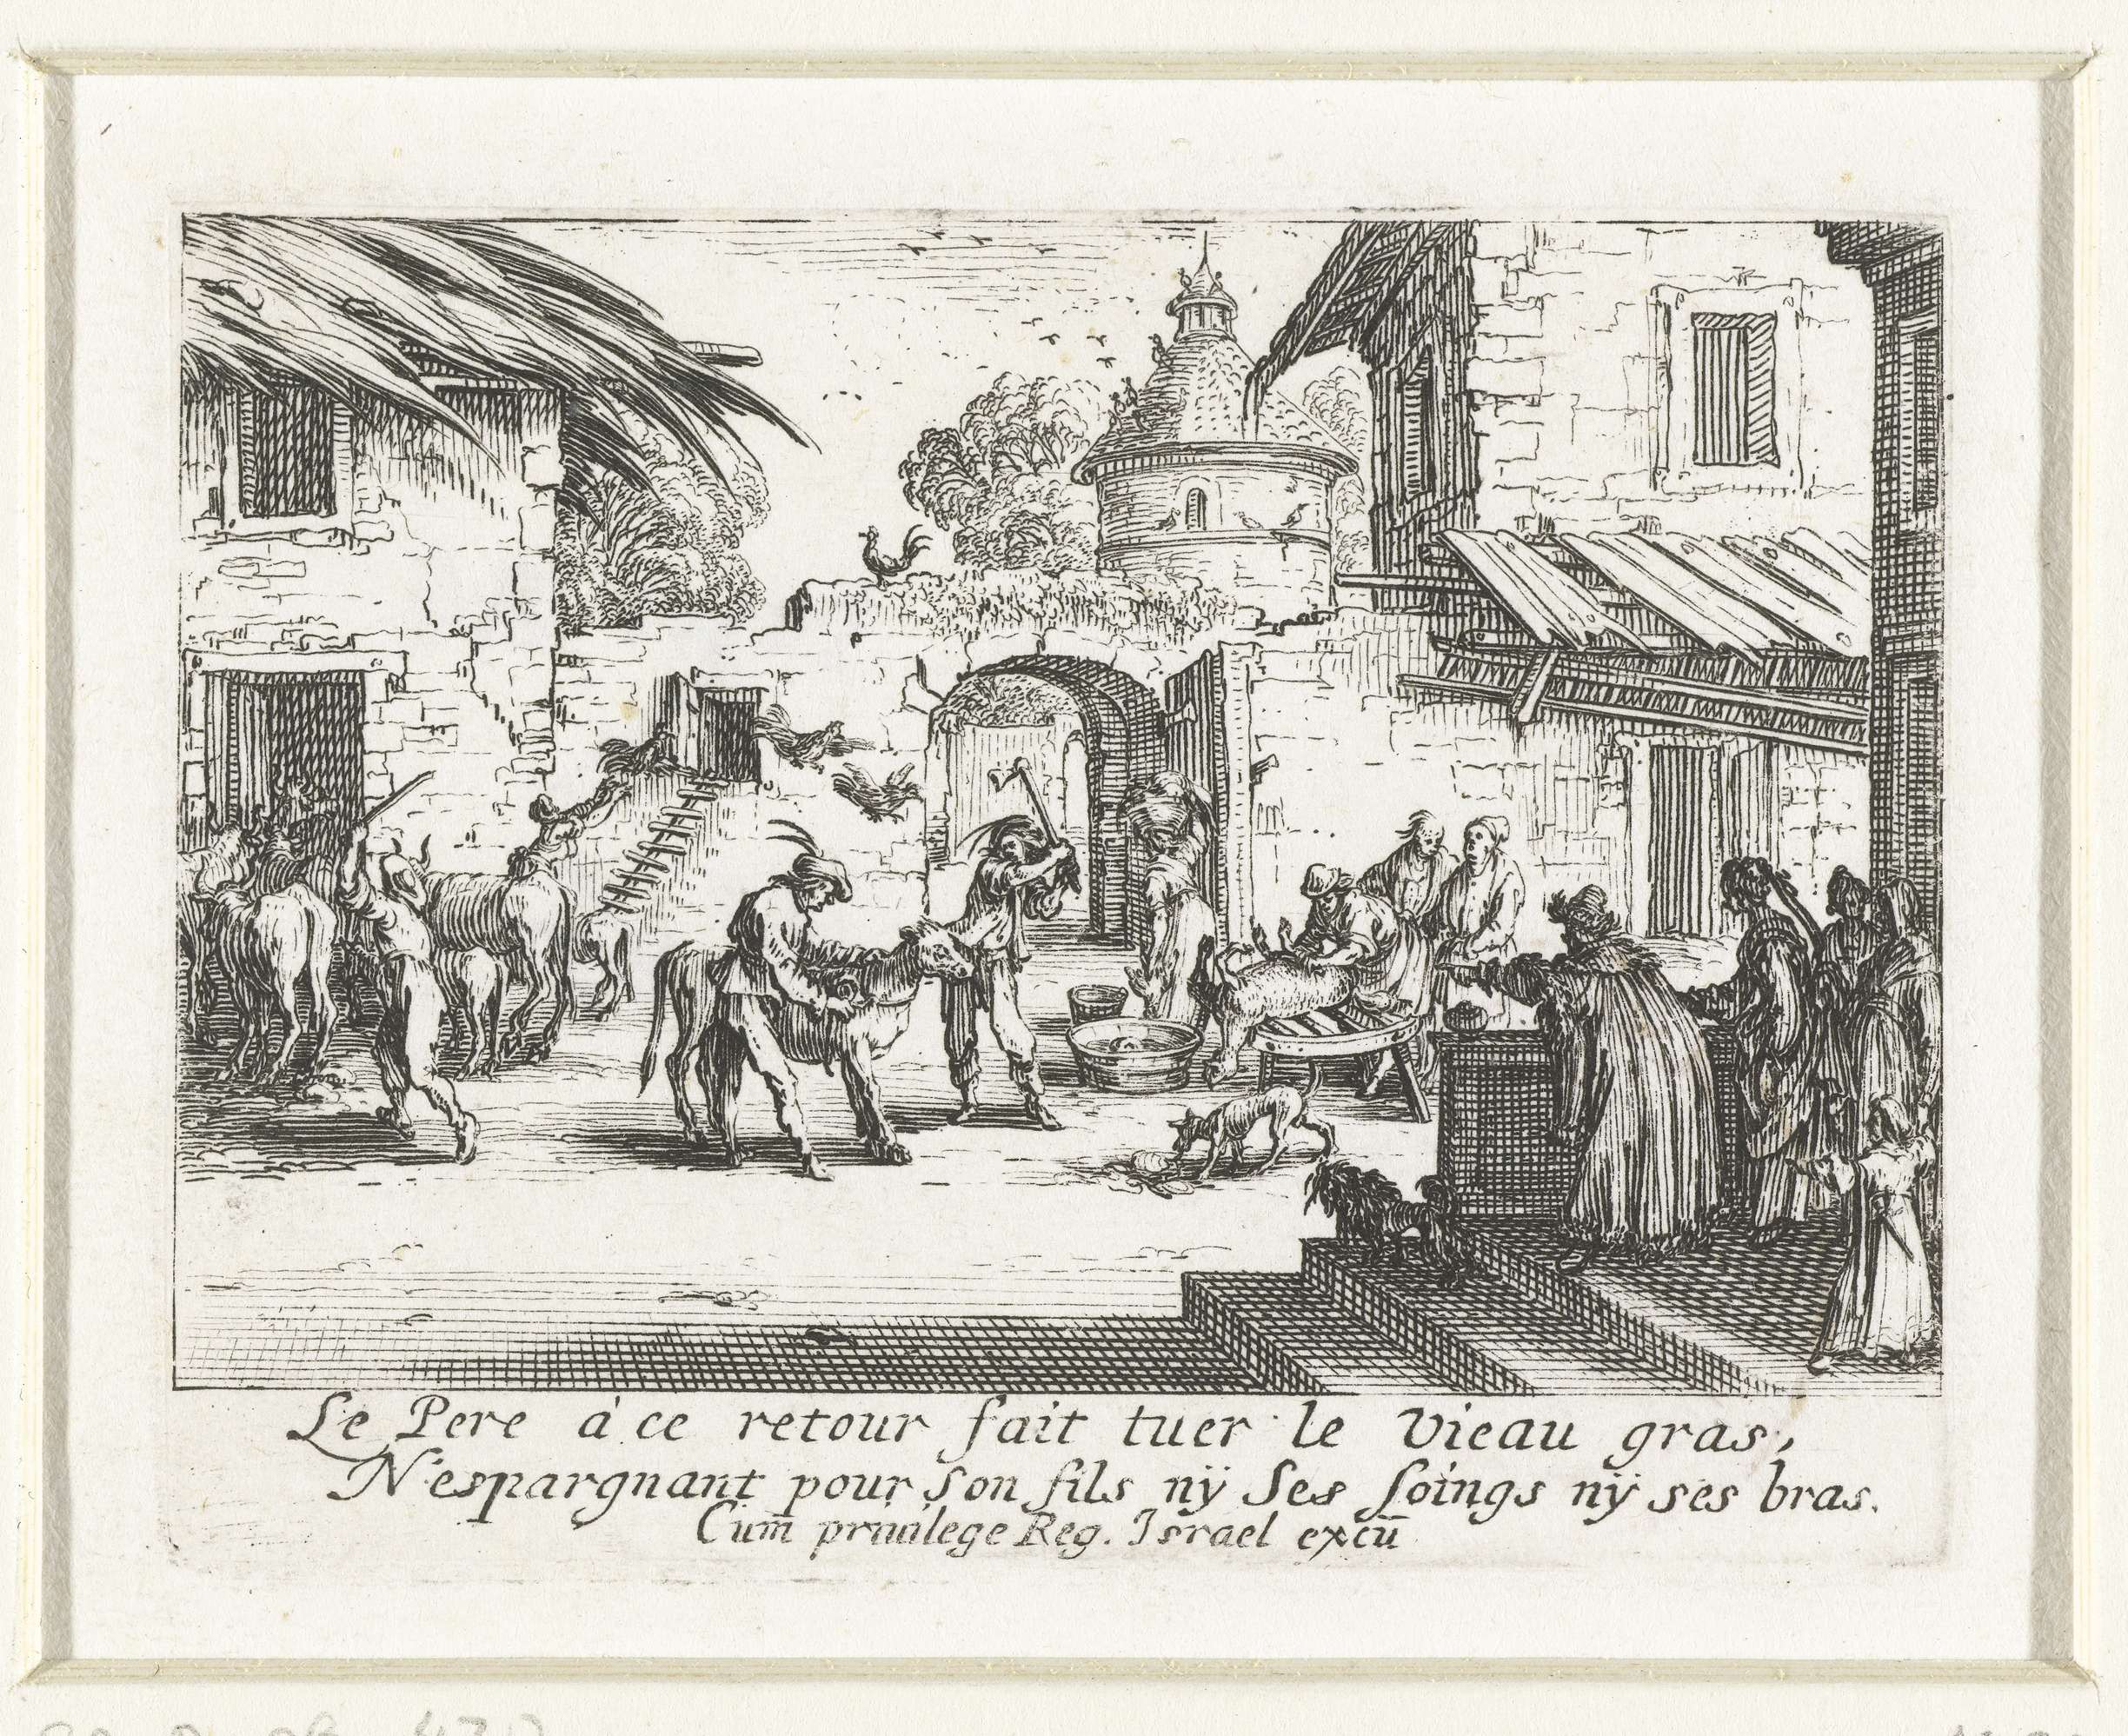 Le Pere à ce retour fait tuer le Vieau gras,
N'espargnant pour son fils nÿ Ses soings nÿ ses bras.
Cum̄ priuilege Reg. Israel excū